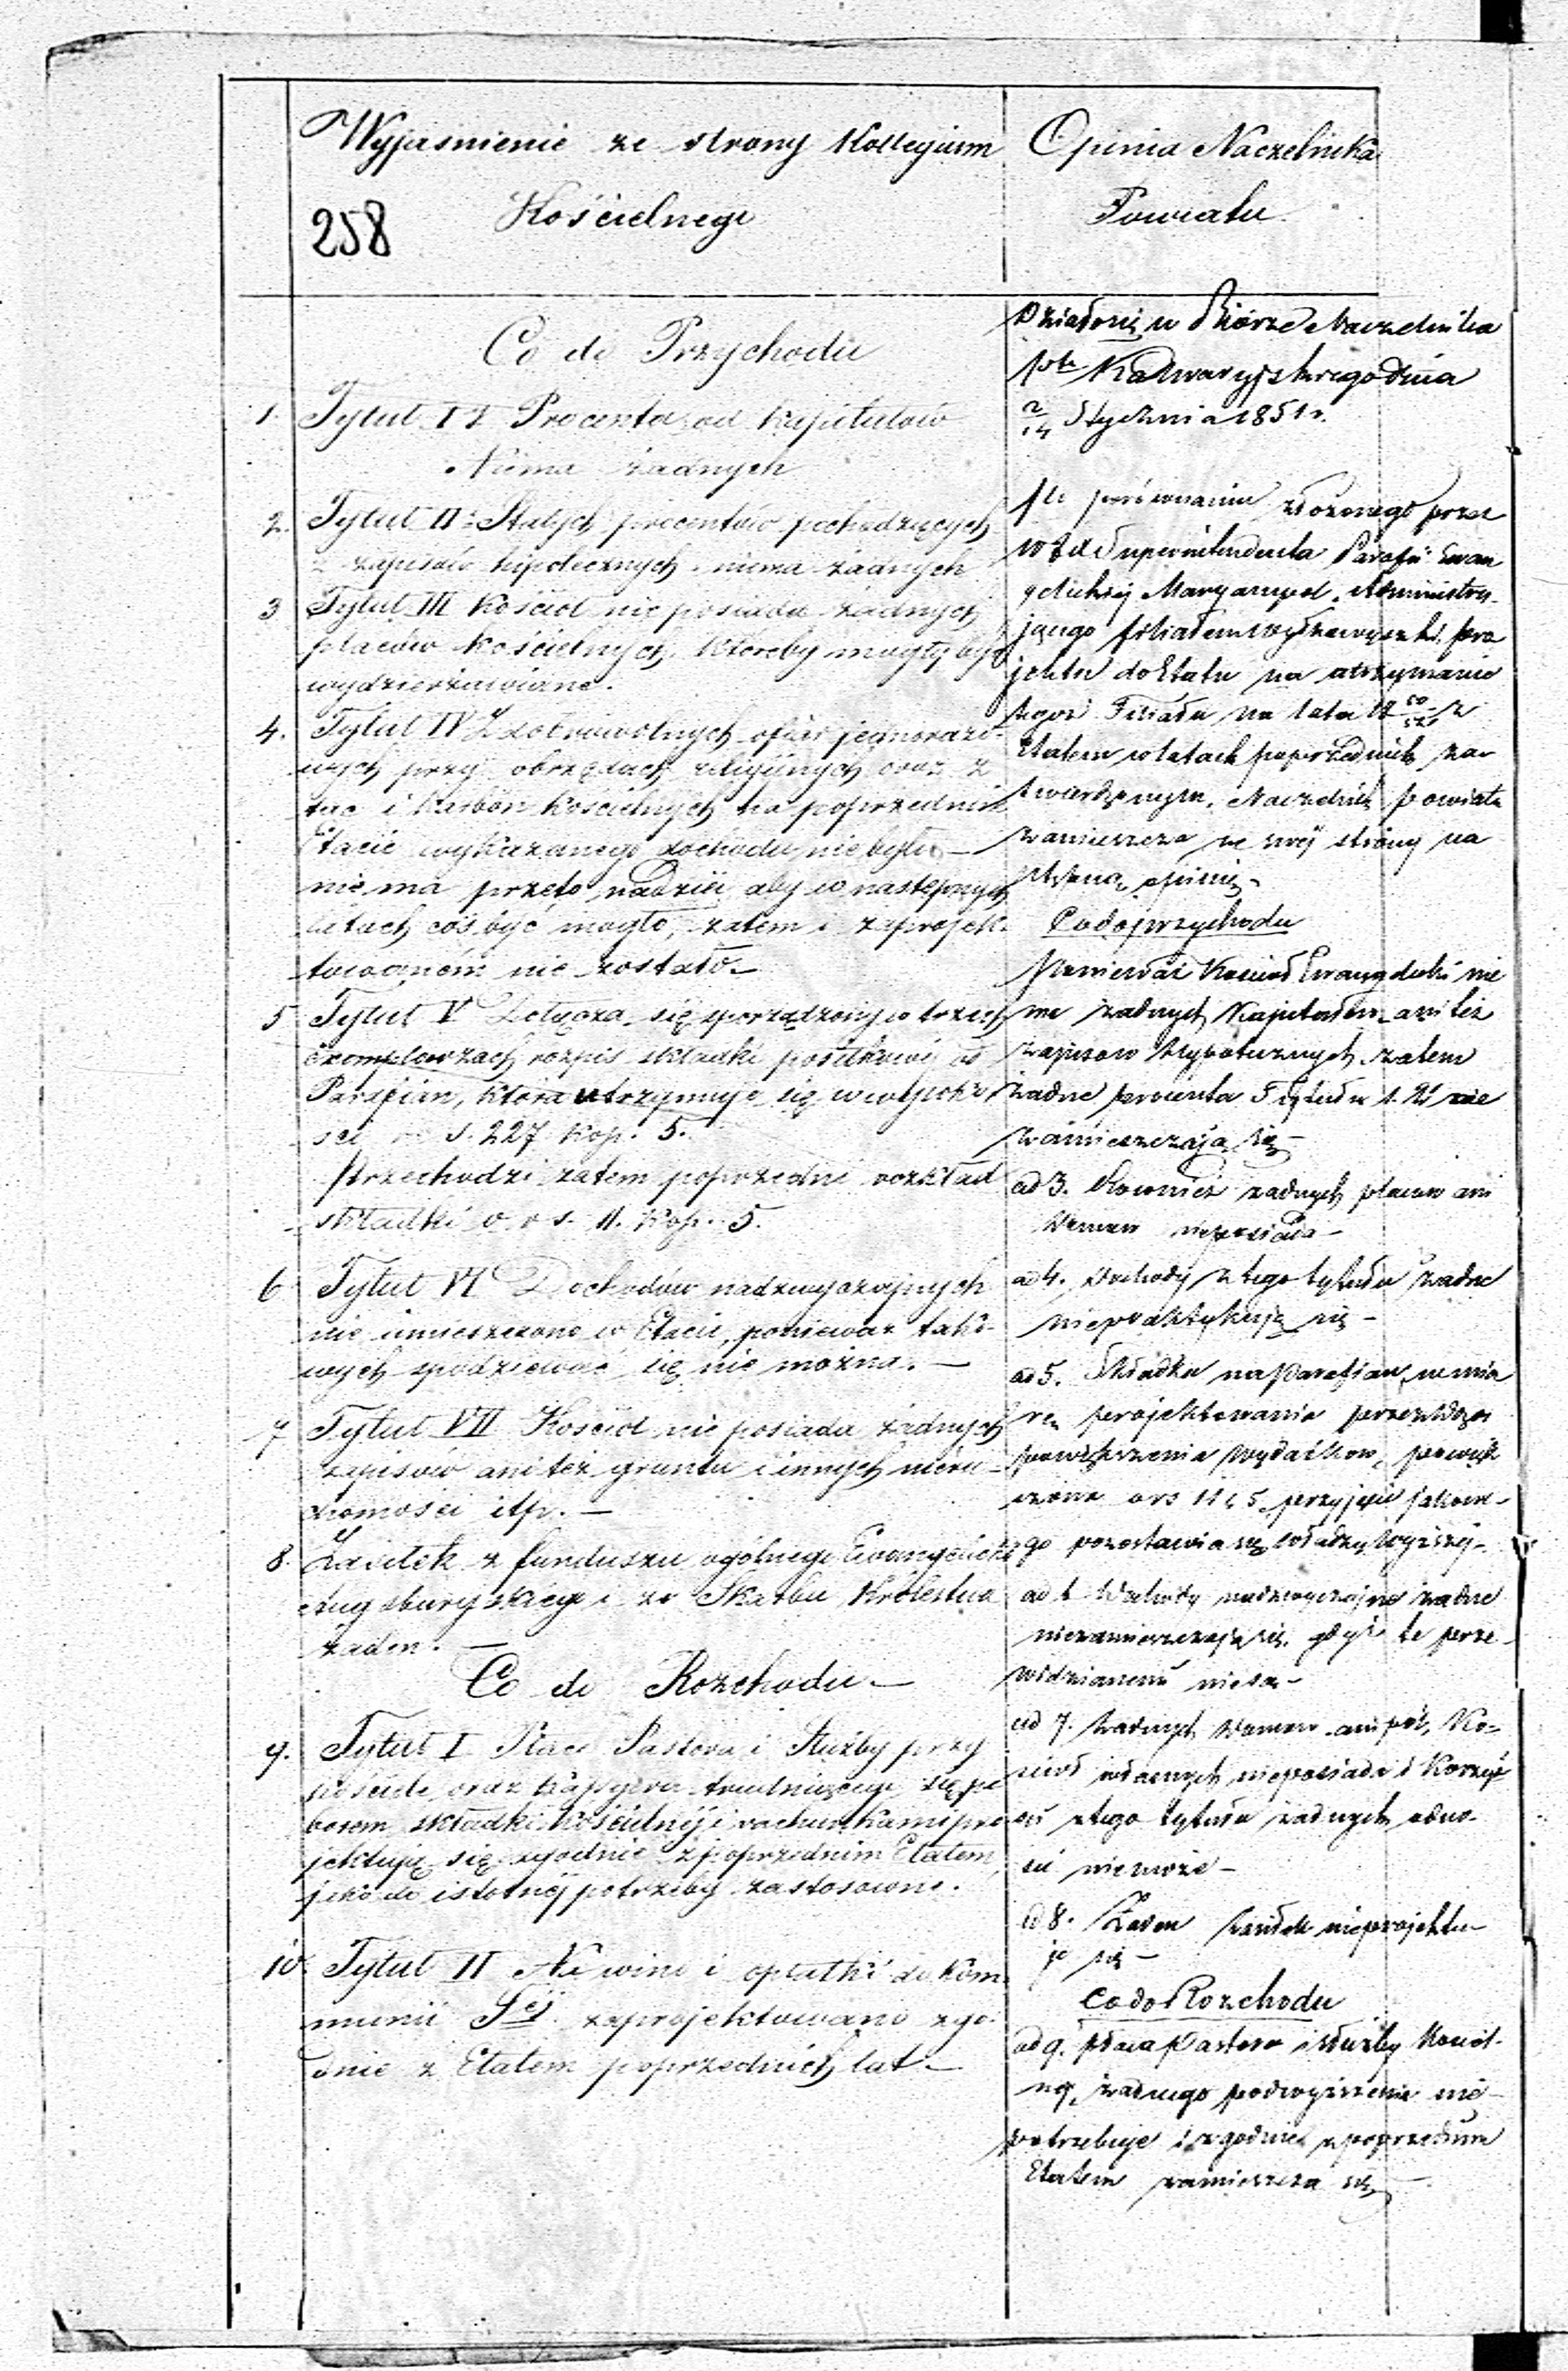 Wyjasnienie ze strony Kollegium
Kościelnego
258
Opinia Naczelnika
Powiatu
Co do Przychodu
1. Tytuł I Procenta od kapitałów
Niema żadnych
2. Tytuł II: Stałych procentów pochodzących
z zapisów hipotecznych niema żadnych
3 Tytuł III Kościoł nie posiada żadnych
placów kościelnych, któreby mogły być
wydzierżawiane.
4. Tytuł IV Z dobrowolnych ofiar jednorazo-
wych przy obrzędach religijnych oraz z
tac i karbon kościelnych na poprzednim
Etacie wykazanego dochodu nie było —
nie ma przeto nadziei aby w następnych
latach coś być mogło, zatem i zaprojek-
towaném nie zostało —
5 Tytuł V Dotycza się sporządzony w trzech
exemplarzach rozpis składki posiłkowéj od
Parafian, która utrzymuje się w wysoko
sci r. s. 227 kop. 5.
Przechodzi zatem poprzedni rozkład
składki o r s. 11. kop. 5.
6 Tytuł VI Dochodów nadzwyczajnych
nie umieszczono w Etacie, ponieważ tako-
wych spodziewać się nie można. —
7 Tytuł VII Kościoł nie posiada żadnych
zapisów ani też gruntu i innych nieru-
chomości itp. —
8. Zasiłek z funduszu ogólnego Ewangelicko
Augsburgskiego i ze Skarbu Królestwa
żaden. —
Co do Rozchodu —
9. Tytuł I Płace Pastora i Służby przy
kościele oraz kassyera trudniącego się po
borem składki kościelnéj i rachunkami pro
jektują się zgodnie z poprzednim Etatem,
jako do istotnéj potrzeby zastosowne.
10. Tytuł II Na wino i opłatki do Kom-
munii Sej zaprojektowano zgo-
dnie z Etatem poprzednich lat —
Działo się w Biórze Naczelnika
ptu Kalwaryjskiego dnia
2/14 Stycznia 1851 r.
po porównaniu złożonego przez
Superintendenta Parafii Ewan
gelickiej Maryampol. Administru-
jącego filiałem pro
jektu do Etatu na utrzymanie
tegoż Filiału na lata z
Etatem w latach poprzednich za-
twierdzonym, Naczelnik powiatu
zamieszcza ze swéj strony na
opinię —
Co do przychodu
Ponieważ Kościoł Ewangelicki nie
ma żadnych Kapitałów ani też
zapisów hypotecznych zatem
żadne procenta Tytułu 1. 2 nie
zamieszczają się —
ad 3. Rownież żadnych placow ani
nieposiada —
ad 4. Dochody z tego tytułu żadne
niepraktykują się —
ad 5. Składka na Parafian, w mia
rę projektowania przez
powiększenia wydatków, powięk
szona o rs 11 k 5. przyjęcie jakowe-
go pozostawia się władzy wyższéj —
ad 6 Dochody nadzwyczajne żadne
niezamieszczają się, gdyż te prze-
widzianemi nie są —
ad 7. żadnych ani pól, Ko-
scioł własnych nieposiada i Korzyś
ci z tego tytułu żadnych odno-
sić niemoże —
ad 8. Żaden zasiłek nieprojektu-
je się —
Co do Rozchodu
ad 9. płaca Pastora i służby Kościel-
nej, żadnego podwyższenia nie-
potrzebuje i zgodnie z poprzednim
Etatem zamieszcza się —